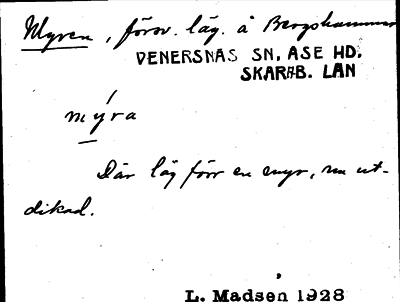 Myren, försv. läg. å Bergshammar
VENERSNÄS SN. ÅSE HD.
SKARAB. LÄN
mýra
Där låg förr en myr, nu ut-
dikad.
L. Madsen 1928